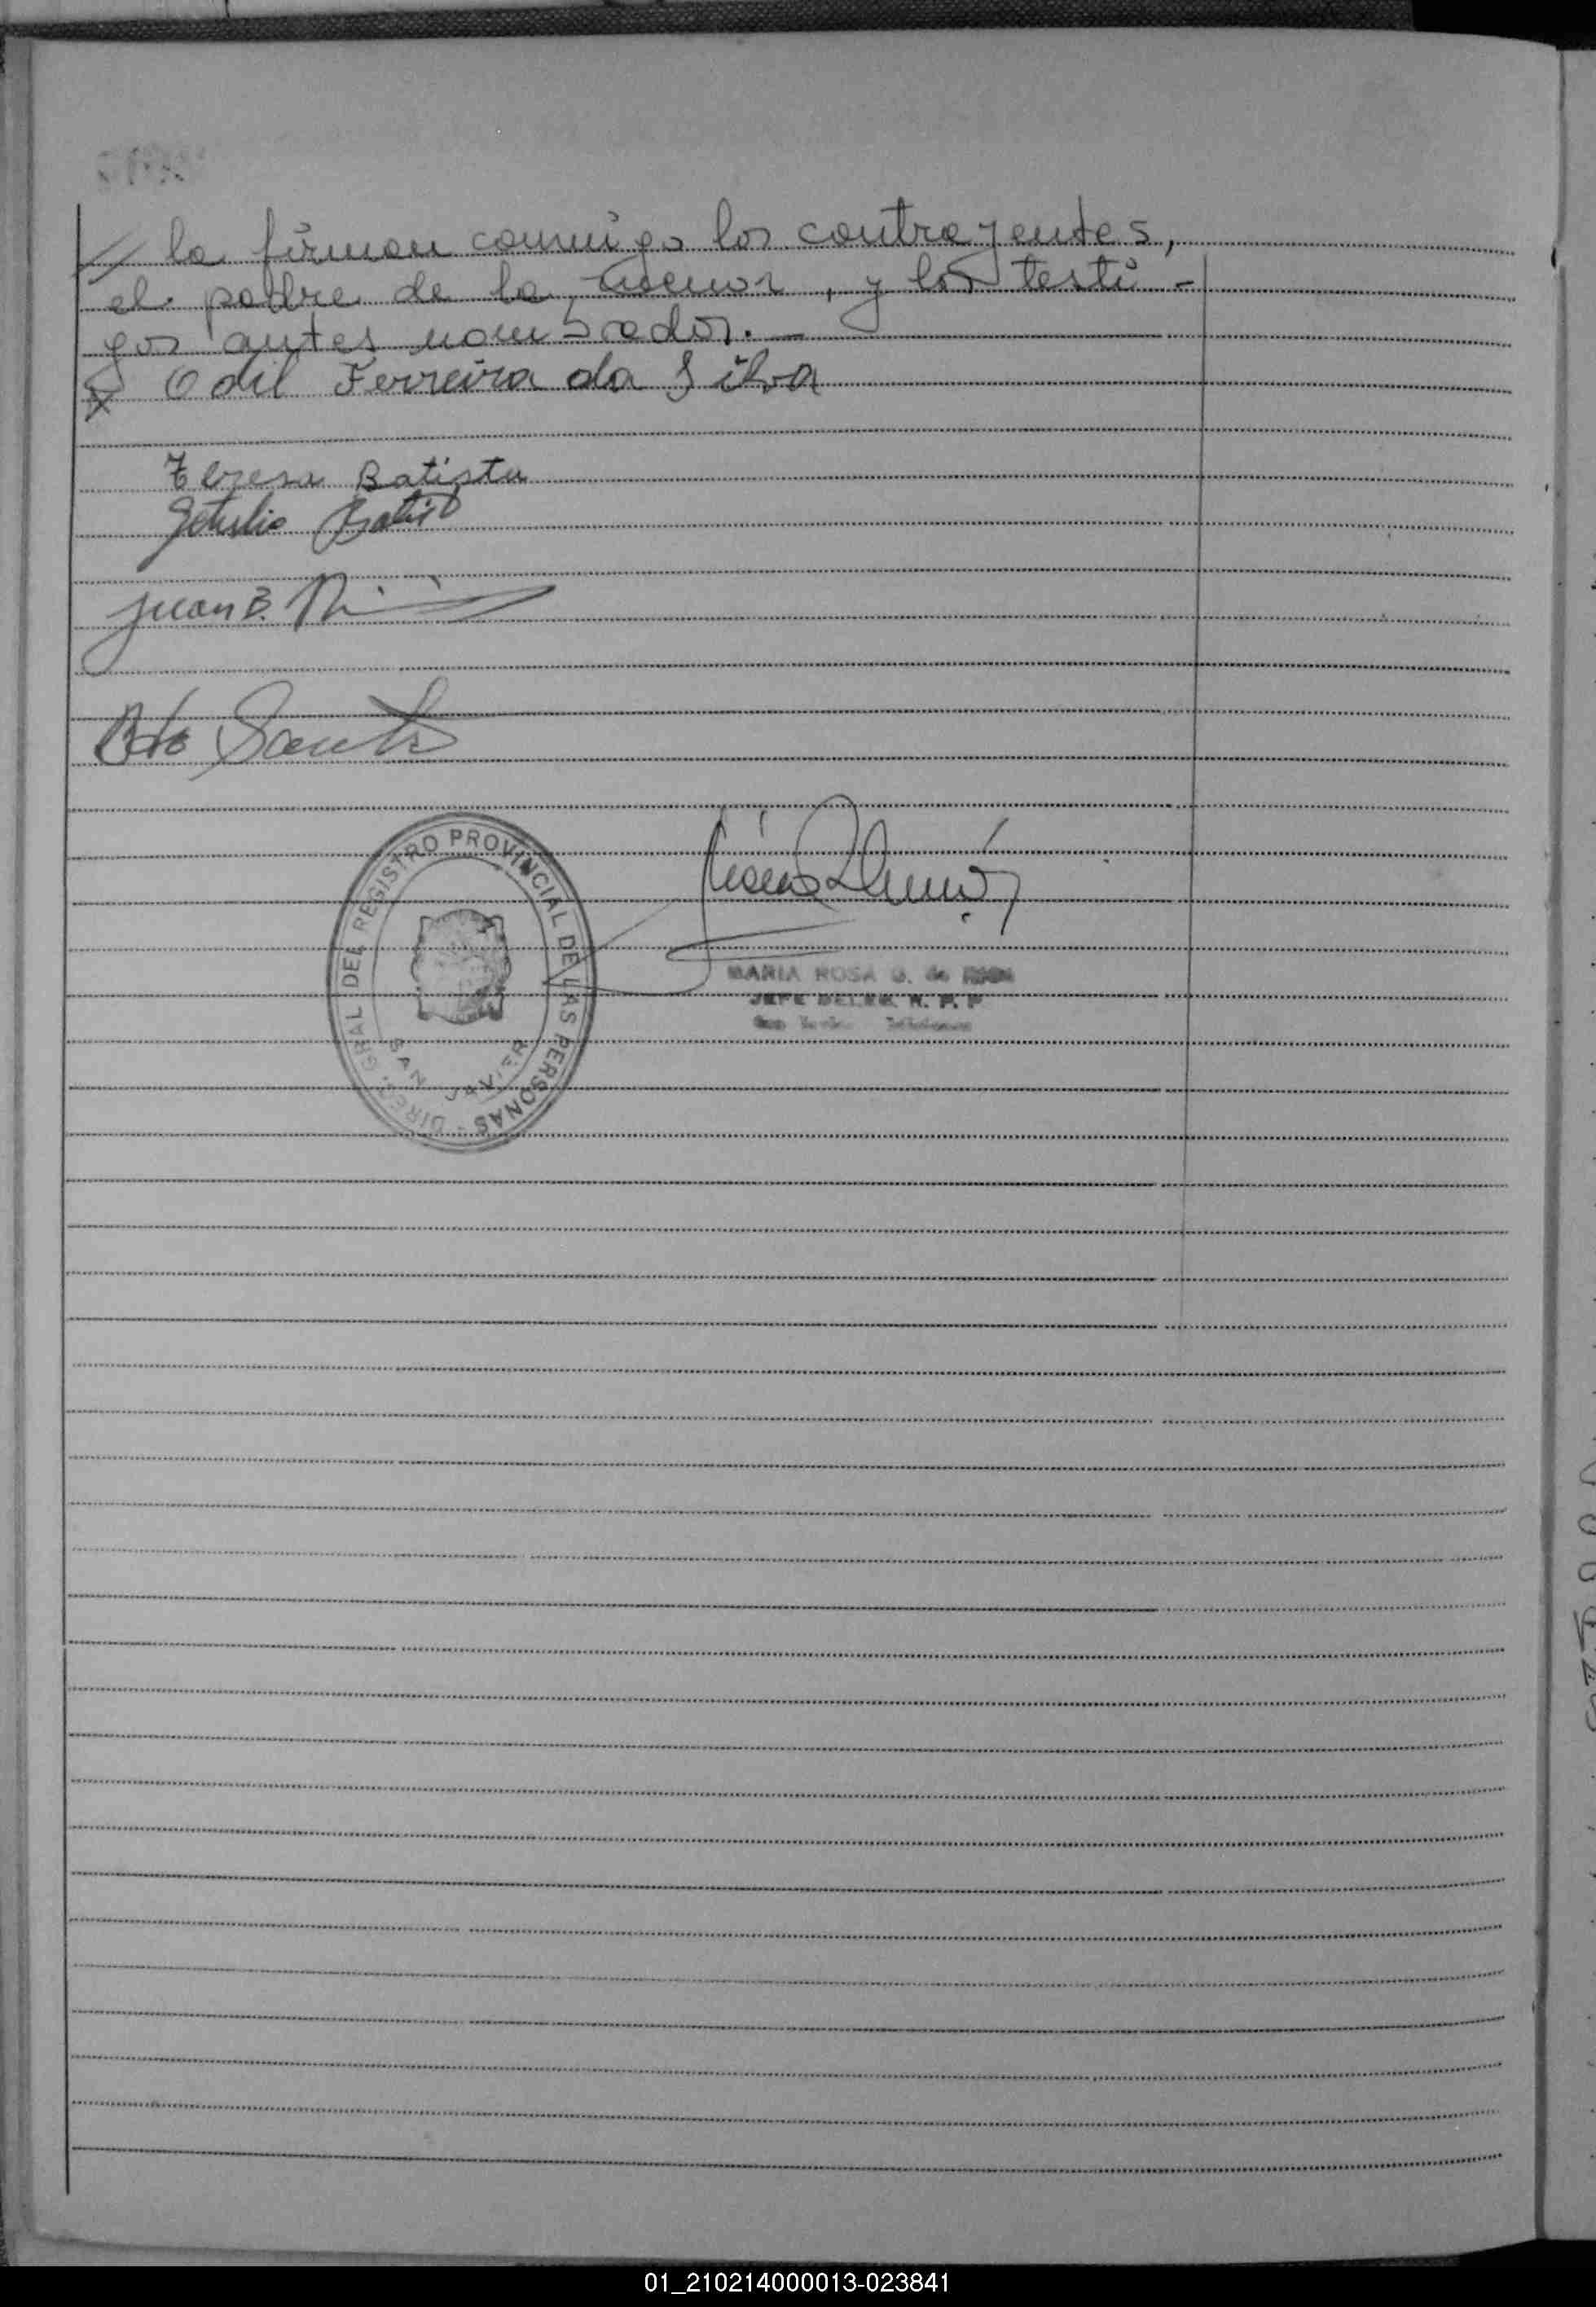 // la firman conmigo los contrayentes,
el padre de la menor, y los testi-
gos antes nombrados. —
x Odil Ferreira da Silva
Teresa Batista
Getulio Batist
Juan B.
Bto Santos
DIREC. GRAL DEL REGISTRO PROVINCIAL DE LAS PERSONAS -
SAN JAVIER
MARIA ROSA G. de
JEFE DELEG. R. P. P
01_210214000013-023841